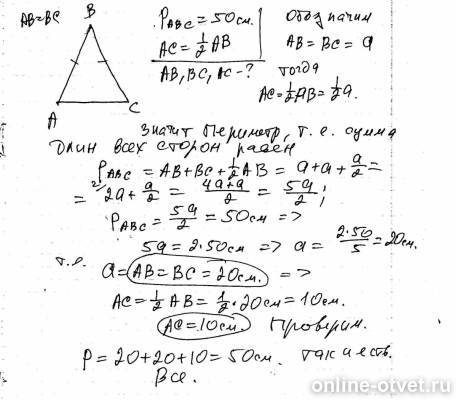 AB=BC
B
A
C
P_ABC = 50см.
AC = 1/2 AB
AB, BC, AC - ?
Обозначим
AB = BC = a
тогда
AC = 1/2 AB = 1/2 a.
значит периметр, т.е. сумма
длин всех сторон равен
P_ABC = AB + BC + 1/2 AB = a + a + a/2 =
= 2a + a/2 = (4a+a)/2 = 5a/2;
P_ABC = 5a/2 = 50см =>
5a = 2·50см => a = 2·50/5 = 20см.
т.е.
a = AB = BC = 20см. =>
AC = 1/2 AB = 1/2 · 20см = 10см.
AC = 10см. Проверим.
P = 20 + 20 + 10 = 50см. так и есть.
Все.
online-otvet.ru